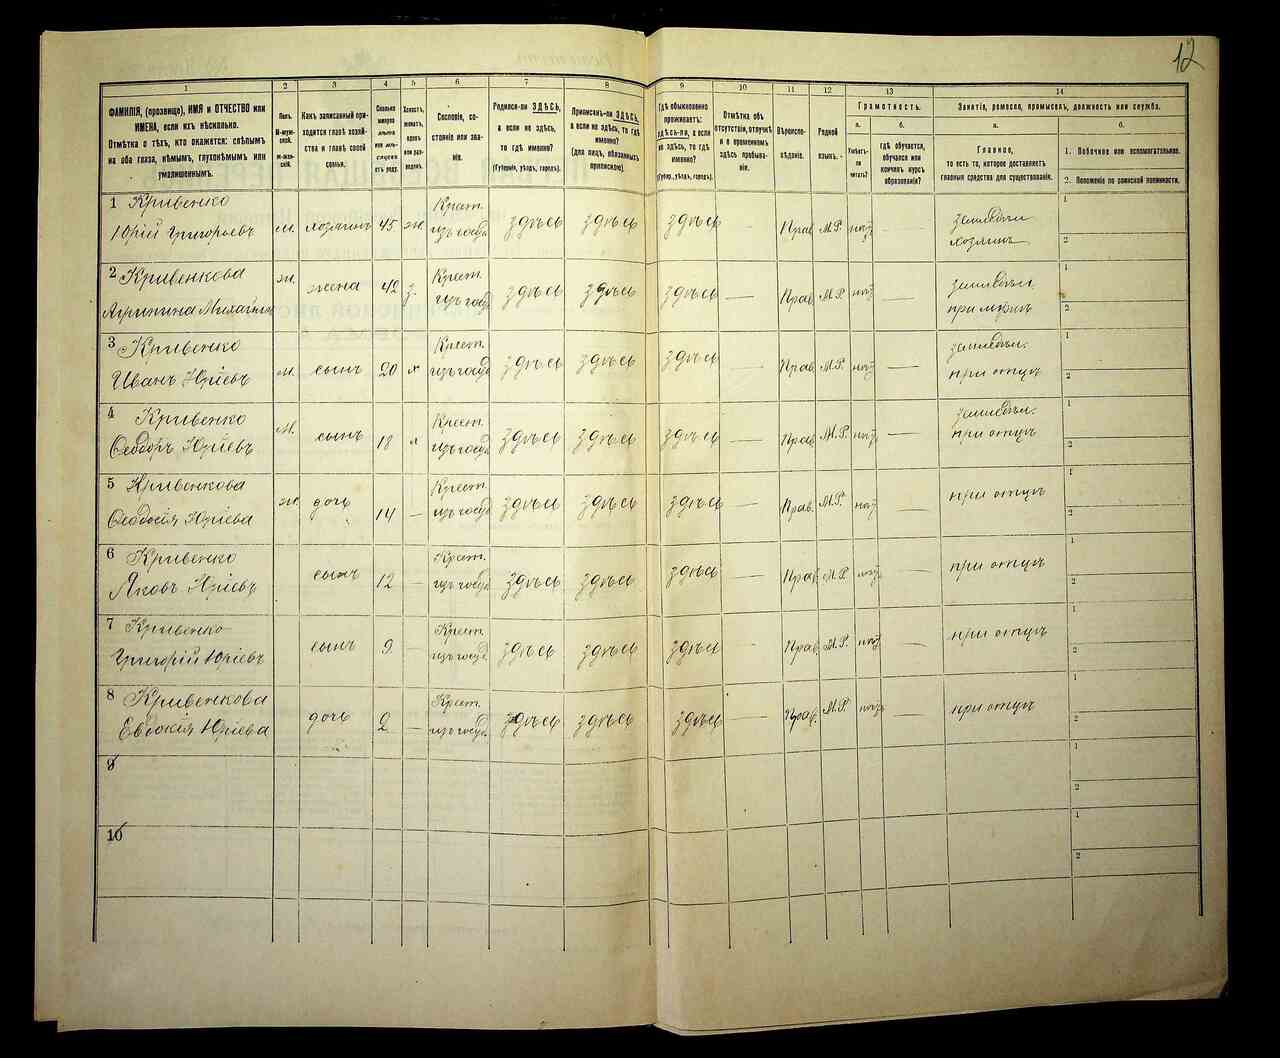 12
1 2 3 4 5 6 7 8 9 10 11 12 13 14
ФАМИЛІЯ, (прозвище), ИМЯ и ОТЧЕСТВО или
ИМЕНА, если ихъ нѣсколько.
Отмѣтка о тѣхъ, кто окажется: слѣпымъ
на оба глаза, нѣмымъ, глухонѣмымъ или
умалишеннымъ.
Полъ.
М-муж-
ской.
Ж-жен-
скій.
Какъ записанный при-
ходится главѣ хозяй-
ства и главѣ своей
семьи.
Сколько
минуло
лѣтъ
или мѣ-
сяцевъ
отъ роду.
Холостъ,
женатъ,
вдовъ
или раз-
веденъ.
Сословіе, со-
стояніе или зва-
ніе.
Родился-ли ЗДѢСЬ,
а если не здѣсь,
то гдѣ именно?
(Губернія, уѣздъ, городъ).
Приписанъ-ли ЗДѢСЬ,
а если не здѣсь, то гдѣ
именно?
(для лицъ, обязанныхъ
припискою).
Гдѣ обыкновенно
проживаетъ:
здѣсь-ли, а если
не здѣсь, то гдѣ
именно?
(Губер., уѣздъ, городъ).
Отмѣтка объ
отсутствіи, отлучкѣ
и о временномъ
здѣсь пребыва-
ніи.
Вѣроиспо-
вѣданіе.
Родной
языкъ.
Грамотность.
а.
Умѣетъ-
ли
читать?
б.
гдѣ обучается,
обучался или
кончилъ курсъ
образованія?
Занятіе, ремесло, промыселъ, должность или служба.
а.
Главное,
то есть то, которое доставляетъ
главныя средства для существованія.
б.
1. Побочное или вспомогательное.
2. Положеніе по воинской повинности.
1 Кривенко
Юрій Григорьевъ м. хозяинъ 45 ж. Крест. изъ госуд. здѣсь здѣсь здѣсь - Прав. М.Р. нѣтъ - земледѣл. хозяинъ 1 2
2 Кривенкова
Агрипина Михайлов ж. жена 42 з. Крест. изъ госуд. здѣсь здѣсь здѣсь — Прав. М.Р. нѣтъ — земледѣл. при мужѣ 1 2
3 Кривенко
Иванъ Юріевъ м. сынъ 20 х Крест. изъ госуд. здѣсь здѣсь здѣсь — Прав. М.Р. нѣтъ — земледѣл. при отцѣ 1 2
4 Кривенко
Ѳедоръ Юріевъ М. сынъ 18 х Крест. изъ госуд. здѣсь здѣсь здѣсь — Прав. М.Р. нѣтъ — земледѣл. при отцѣ 1 2
5 Кривенкова
Ѳеодосія Юріева ж. дочь 14 — Крест. изъ госуд. здѣсь здѣсь здѣсь — Прав. М.Р. нѣтъ — при отцѣ 1 2
6 Кривенко
Яковъ Юріевъ сынъ 12 — Крест. изъ госуд. здѣсь здѣсь здѣсь — Прав. М.Р. нѣтъ — при отцѣ 1 2
7 Кривенко
Григорій Юріевъ сынъ 9 — Крест. изъ госуд. здѣсь здѣсь здѣсь — Прав. М.Р. нѣтъ — при отцѣ 1 2
8 Кривенкова
Евдокія Юріева дочь 2 — Крест. изъ госуд. здѣсь здѣсь здѣсь — Прав. М.Р. нѣтъ — при отцѣ 1 2
9 1 2
10 1 2